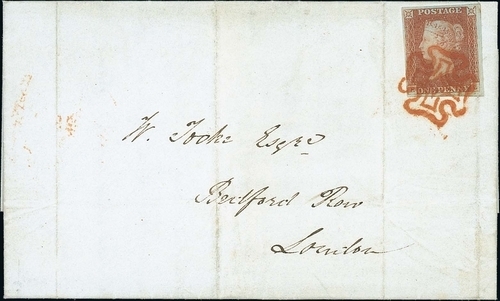 POSTAGE
ONE PENNY
W. Tooke Esqre
Bedford Row
London